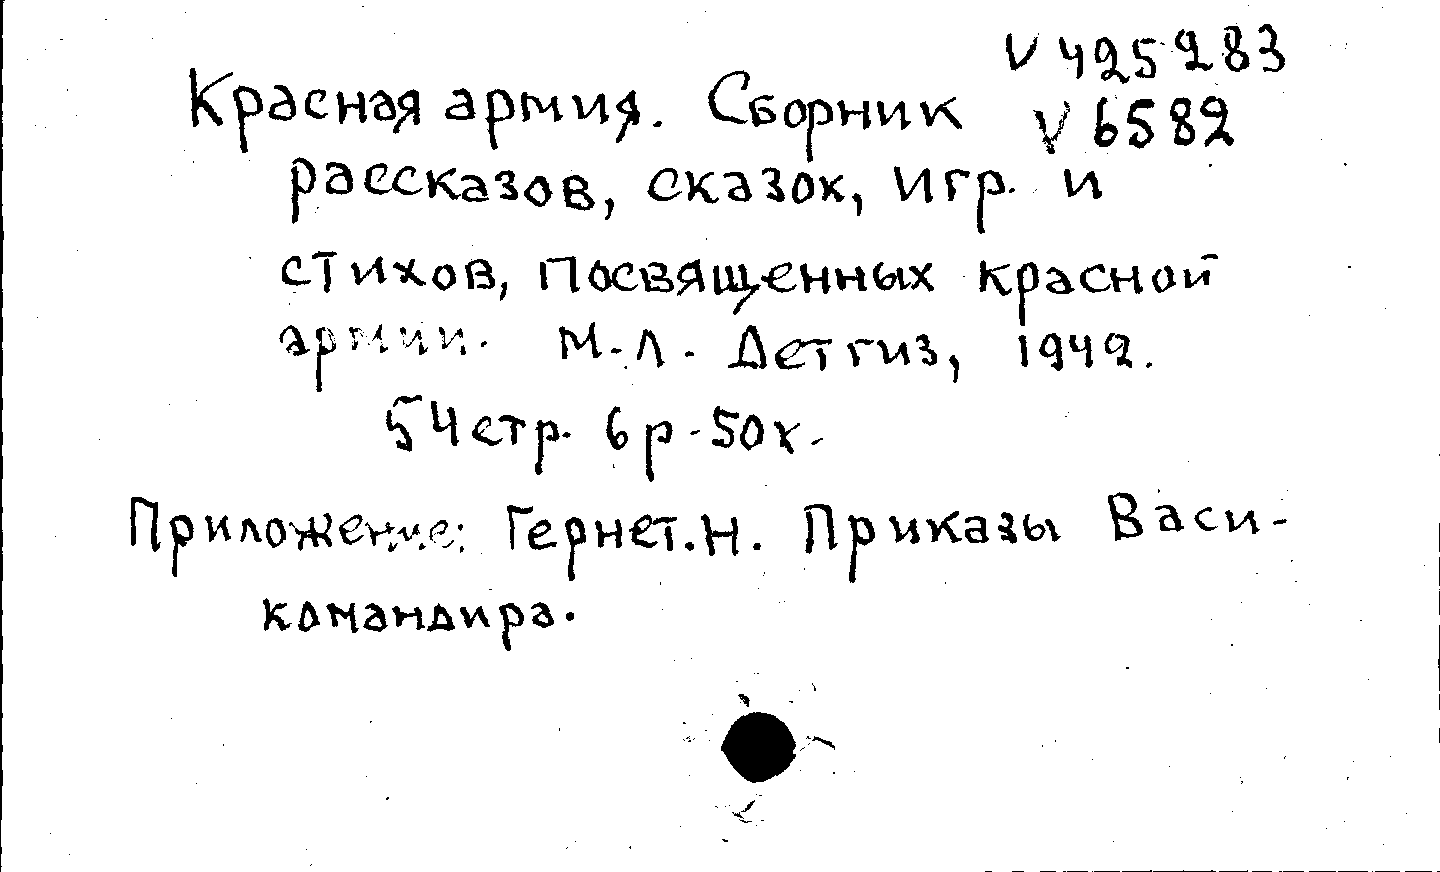 V 425283
Красная армия. Сборник V 6582
рассказов, сказок, игр. и
стихов, посвященных красной
армии. М.-Л. Детгиз, 1942.
54 стр. 6 р. 50 к.
Приложение: Гернет. Н. Приказы Васи-
командира.